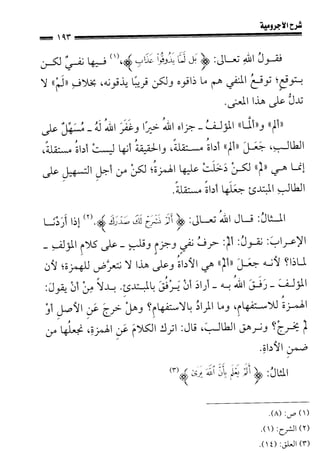 شرح الآجرومية
١٩٣
فقول الله تعالى: ﴿بَل لَّمَّا يَذُوقُوا عَذَابِ﴾(١)، فيها نفيٌ لكن
بتوقعٍ؛ توقعُ المنفي هم ما ذاقوه ولكن قريبًا يذوقونه، بخلاف «لَمْ» لا
تدلُّ على هذا المعنى.
«ألم» و«ألما» المؤلفُ - جزاه اللهُ خيرًا وغَفَرَ اللهُ لهُ - مُسَهِّلٌ على
الطالبِ، جَعَلَ «ألم» أداةً مستقلةً، والحقيقةُ أنها ليستْ أداةً مستقلةً،
إنما هي «لم» لكنْ دَخَلَتْ عليها الهمزةُ؛ لكنْ من أجلِ التسهيلِ على
الطالبِ المبتدئِ جعلَها أداةً مستقلةً.
المثالُ: قال اللهُ تعالى: ﴿أَلَمْ نَشْرَحْ لَكَ صَدْرَكَ﴾(٢). إذا أردْنا
الإعرابَ: نقولُ: ألمْ: حرفُ نفيٍ وجزمٍ وقلبٍ - على كلامِ المؤلفِ -
لماذا؟ لأنه جعلَ «ألم» هي الأداةُ وعلى هذا لا نتعرَّض للهمزة؛ لأن
المؤلفَ - رَفَقَ اللهُ به - أرادَ أنْ يَرْفُقَ بالمبتدئِ. بدلاً مِنْ أنْ يقولَ:
الهمزةُ للاستفهامِ، وما المرادُ بالاستفهامِ؟ وهلْ خرجَ عَنِ الأصلِ أوْ
لم يخرجْ؟ ونرهق الطالبَ، قال: اترك الكلامَ عَنِ الهمزةِ، نجعلُها من
ضمنِ الأداةِ.
المثالُ: ﴿أَلَمْ يَعْلَمْ بِأَنَّ اللَّهَ يَرَىٰ﴾(٣)
(١) ص: (٨).
(٢) الشرح: (١).
(٣) العلق: (١٤).